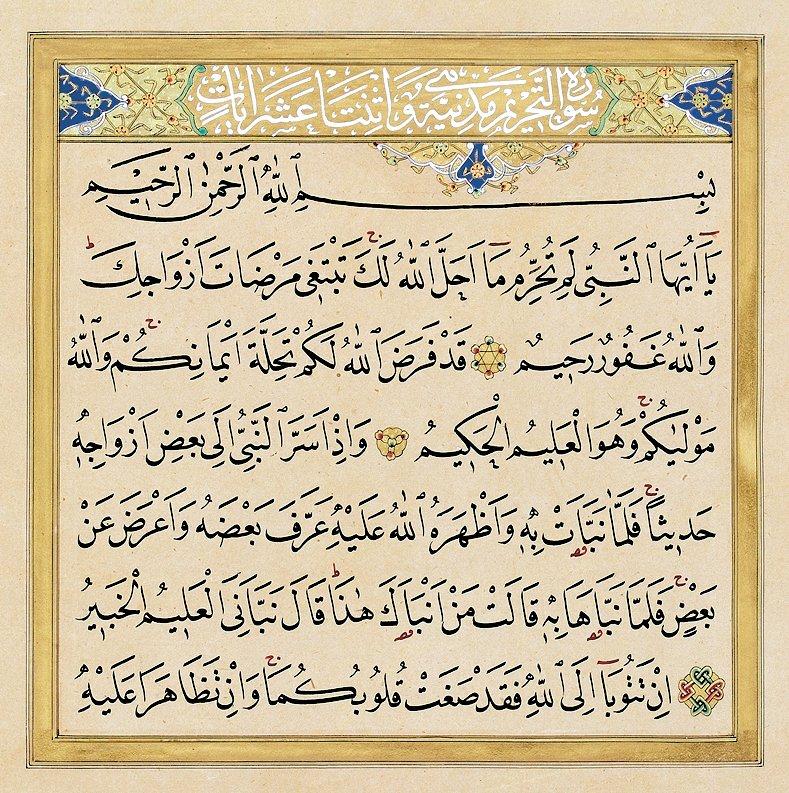 سورة التحريم مدنية وهي اثنتا عشر آيات
بِسْمِ اللهِ الرَّحْمٰنِ الرَّحِيمِ
يَآ اَيُّهَا النَّبِىُّ لِمَ تُحَرِّمُ مَآ اَحَلَّ اللهُ لَكَ تَبْتَغى مَرْضَاتَ اَزْوَاجِكَ
وَاللهُ غَفُورٌ رَحِيمٌ قَدْ فَرَضَ اللهُ لَكُمْ تَحِلَّةَ اَيْمَانِكُمْ وَاللهُ
مَوْلٰيكُمْ وَهُوَ الْعَلِيمُ الْحَكِيمُ وَاِذْ اَسَرَّ النَّبِىُّ اِلٰى بَعْضِ اَزْوَاجِهِ
حَدِيثًا فَلَمَّا نَبَّاَتْ بِهِ وَاَظْهَرَهُ اللهُ عَلَيْهِ عَرَّفَ بَعْضَهُ وَاَعْرَضَ عَنْ
بَعْضٍ فَلَمَّا نَبَّاَهَا بِهِ قَالَتْ مَنْ اَنْبَاَكَ هٰذَا قَالَ نَبَّاَنِىَ الْعَلِيمُ الْخَبِيرُ
اِنْ تَتُوبَآ اِلَى اللهِ فَقَدْ صَغَتْ قُلُوبُكُمَا وَاِنْ تَظَاهَرَا عَلَيْهِ